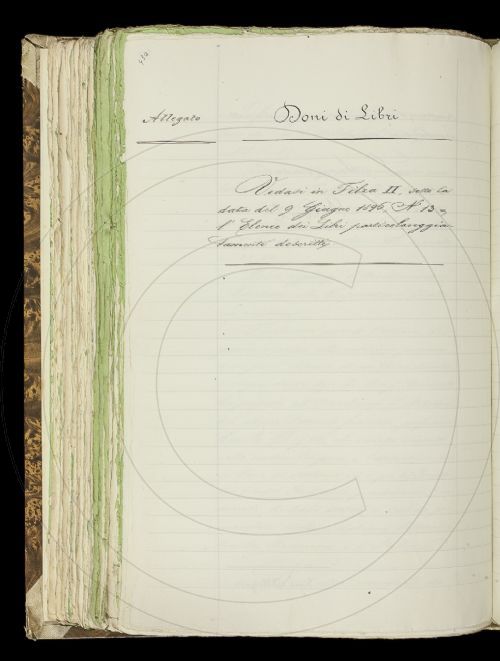 Allegato
Doni di Libri
Vedasi in Filza II, sotto la
data del 9 Giugno 1896, N. 13 =
l' Elenco dei Libri particolareggia-
tamente descritti